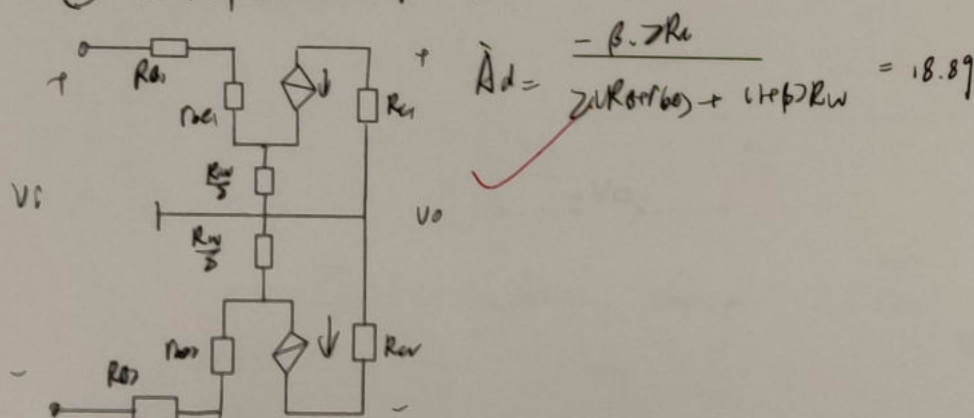 +
RB1
rbe1
Rc1
+
Ȧd = -β·2Rc / 2(RB+rbe)+(1+β)RW = 18.89
Vi
RW/2
Vo
RW/2
rbe2
Rc2
-
RB2
-